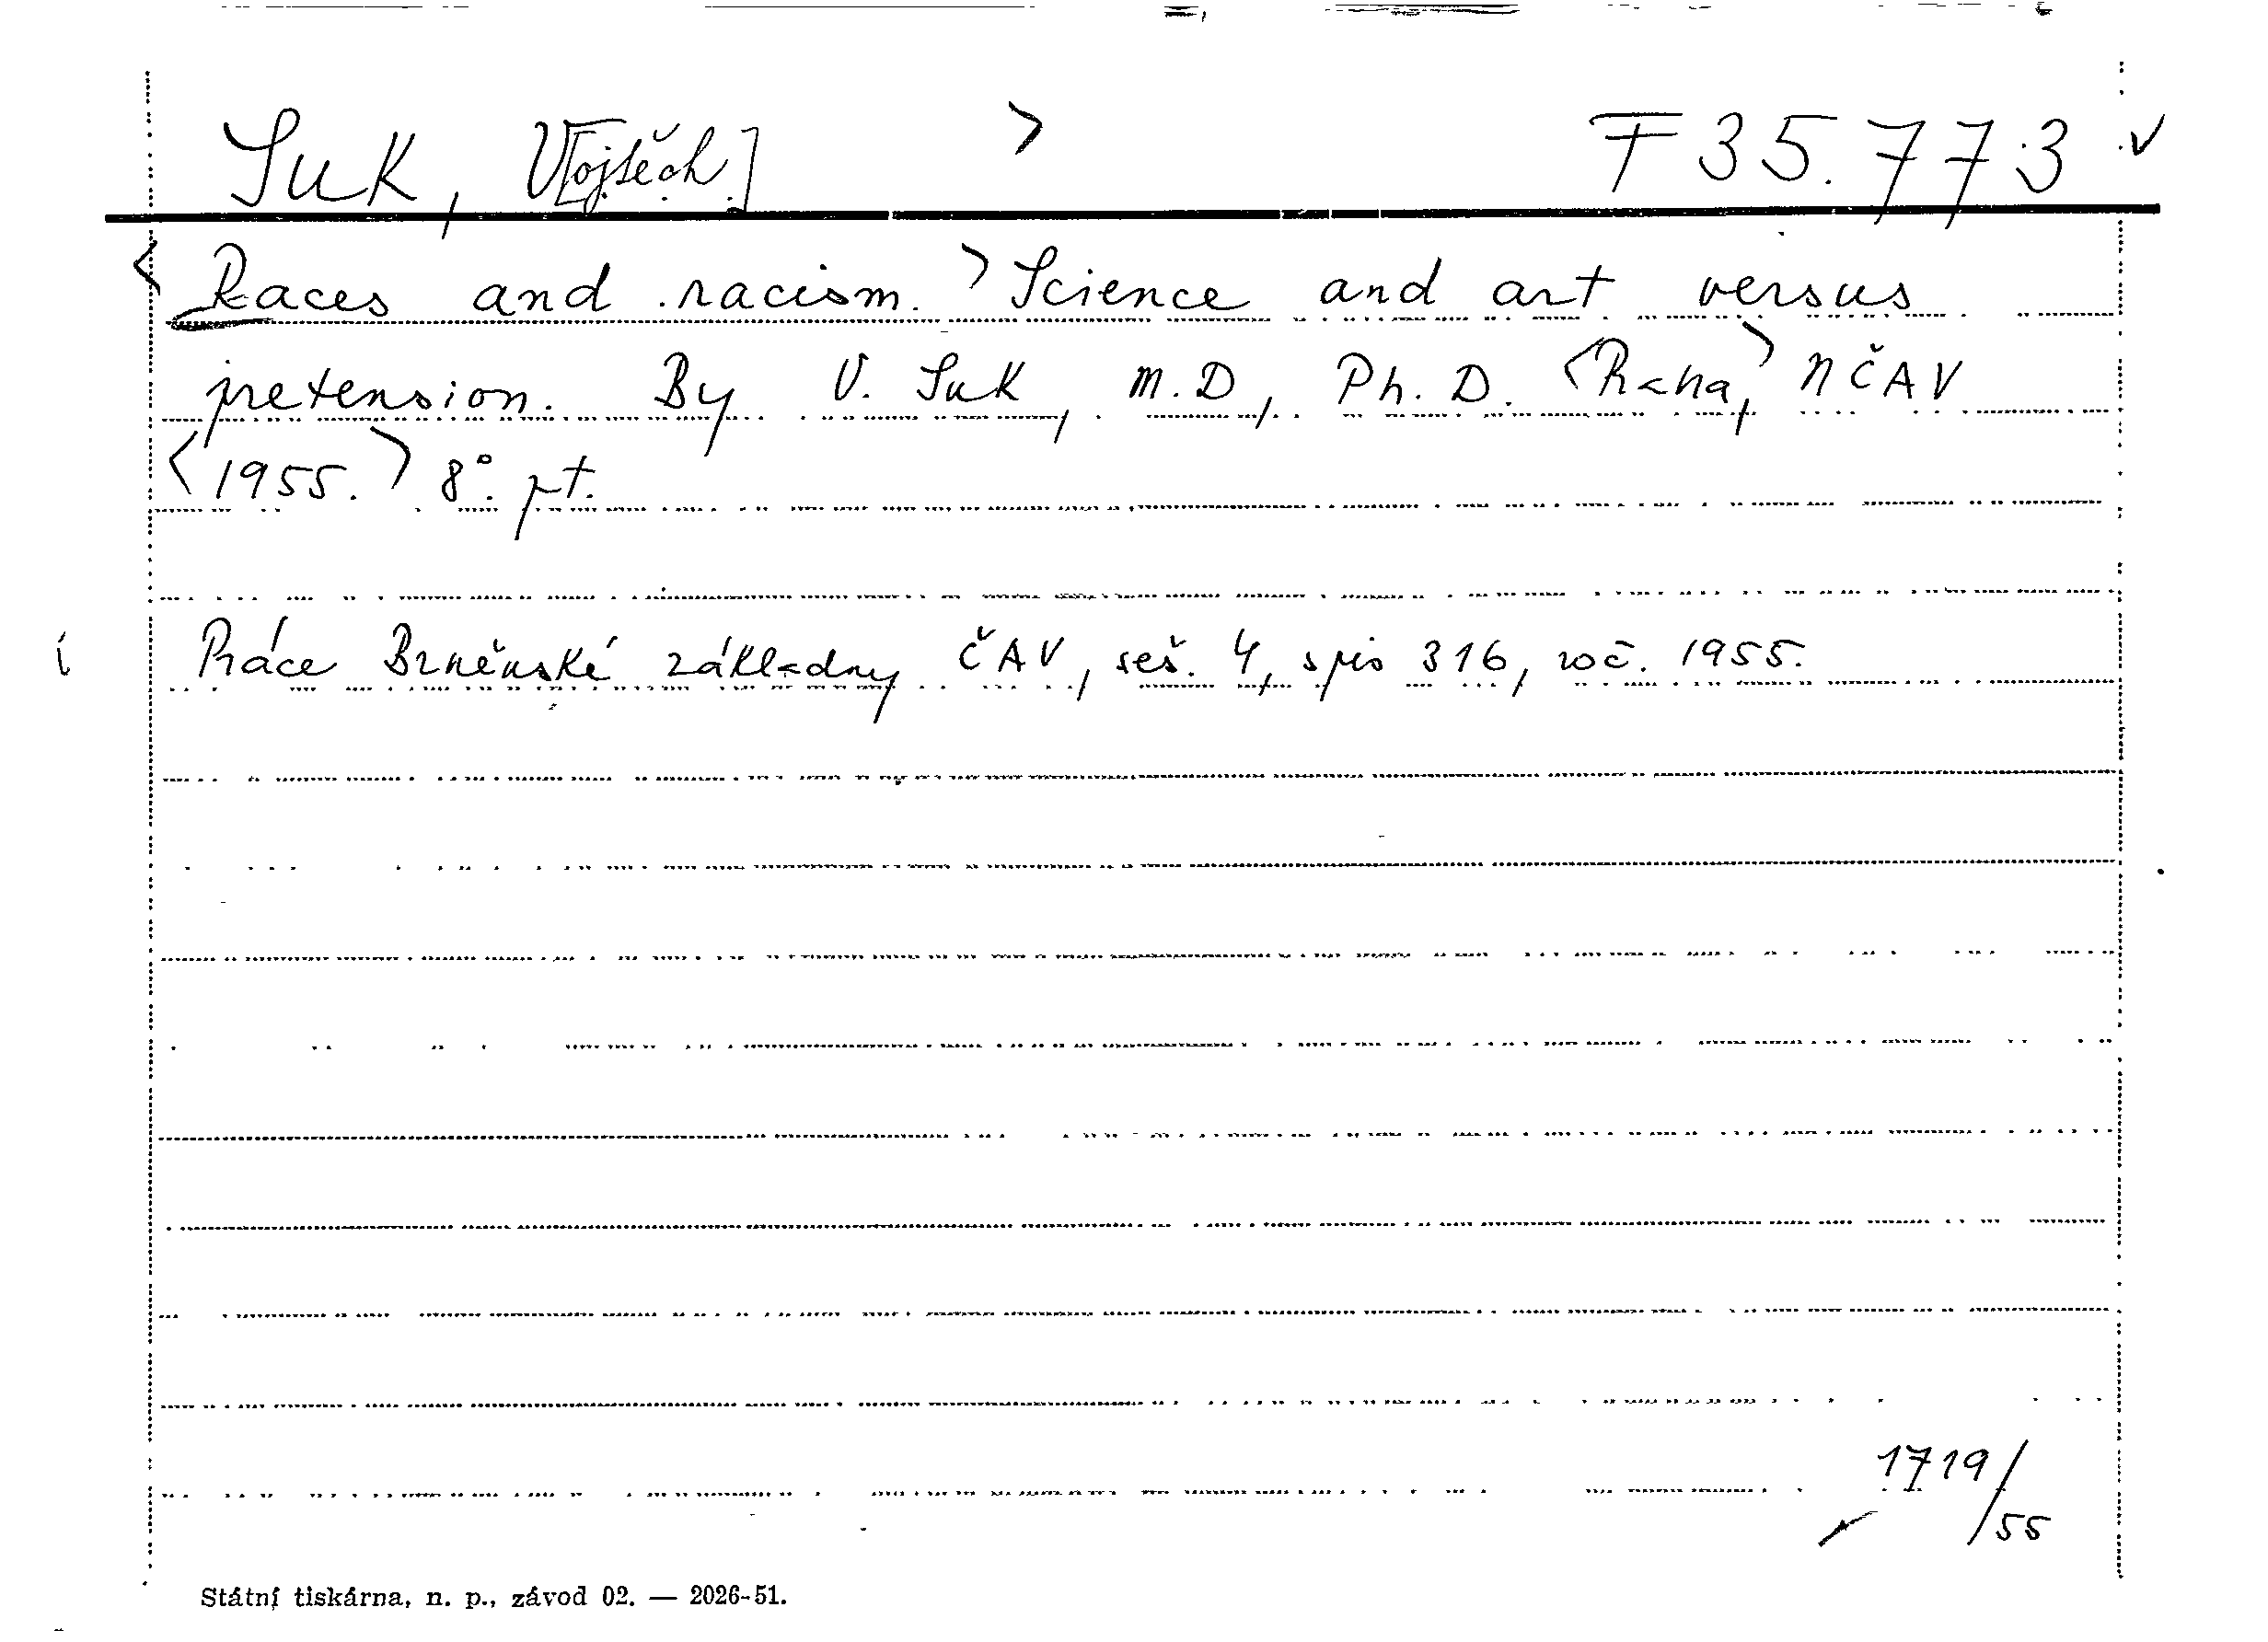 Suk, V[ojtěch] > F 35.773 ✓
<Races and racism.> Science and art versus
pretension. By V. Suk, M.D, Ph.D. <Praha,> NČAV
<1955.> 8°. pt.
i Práce Brněnské základny ČAV, seš. 4, spis 316, roč. 1955.
1719/55
Státní tiskárna, n. p., závod 02. — 2026-51.